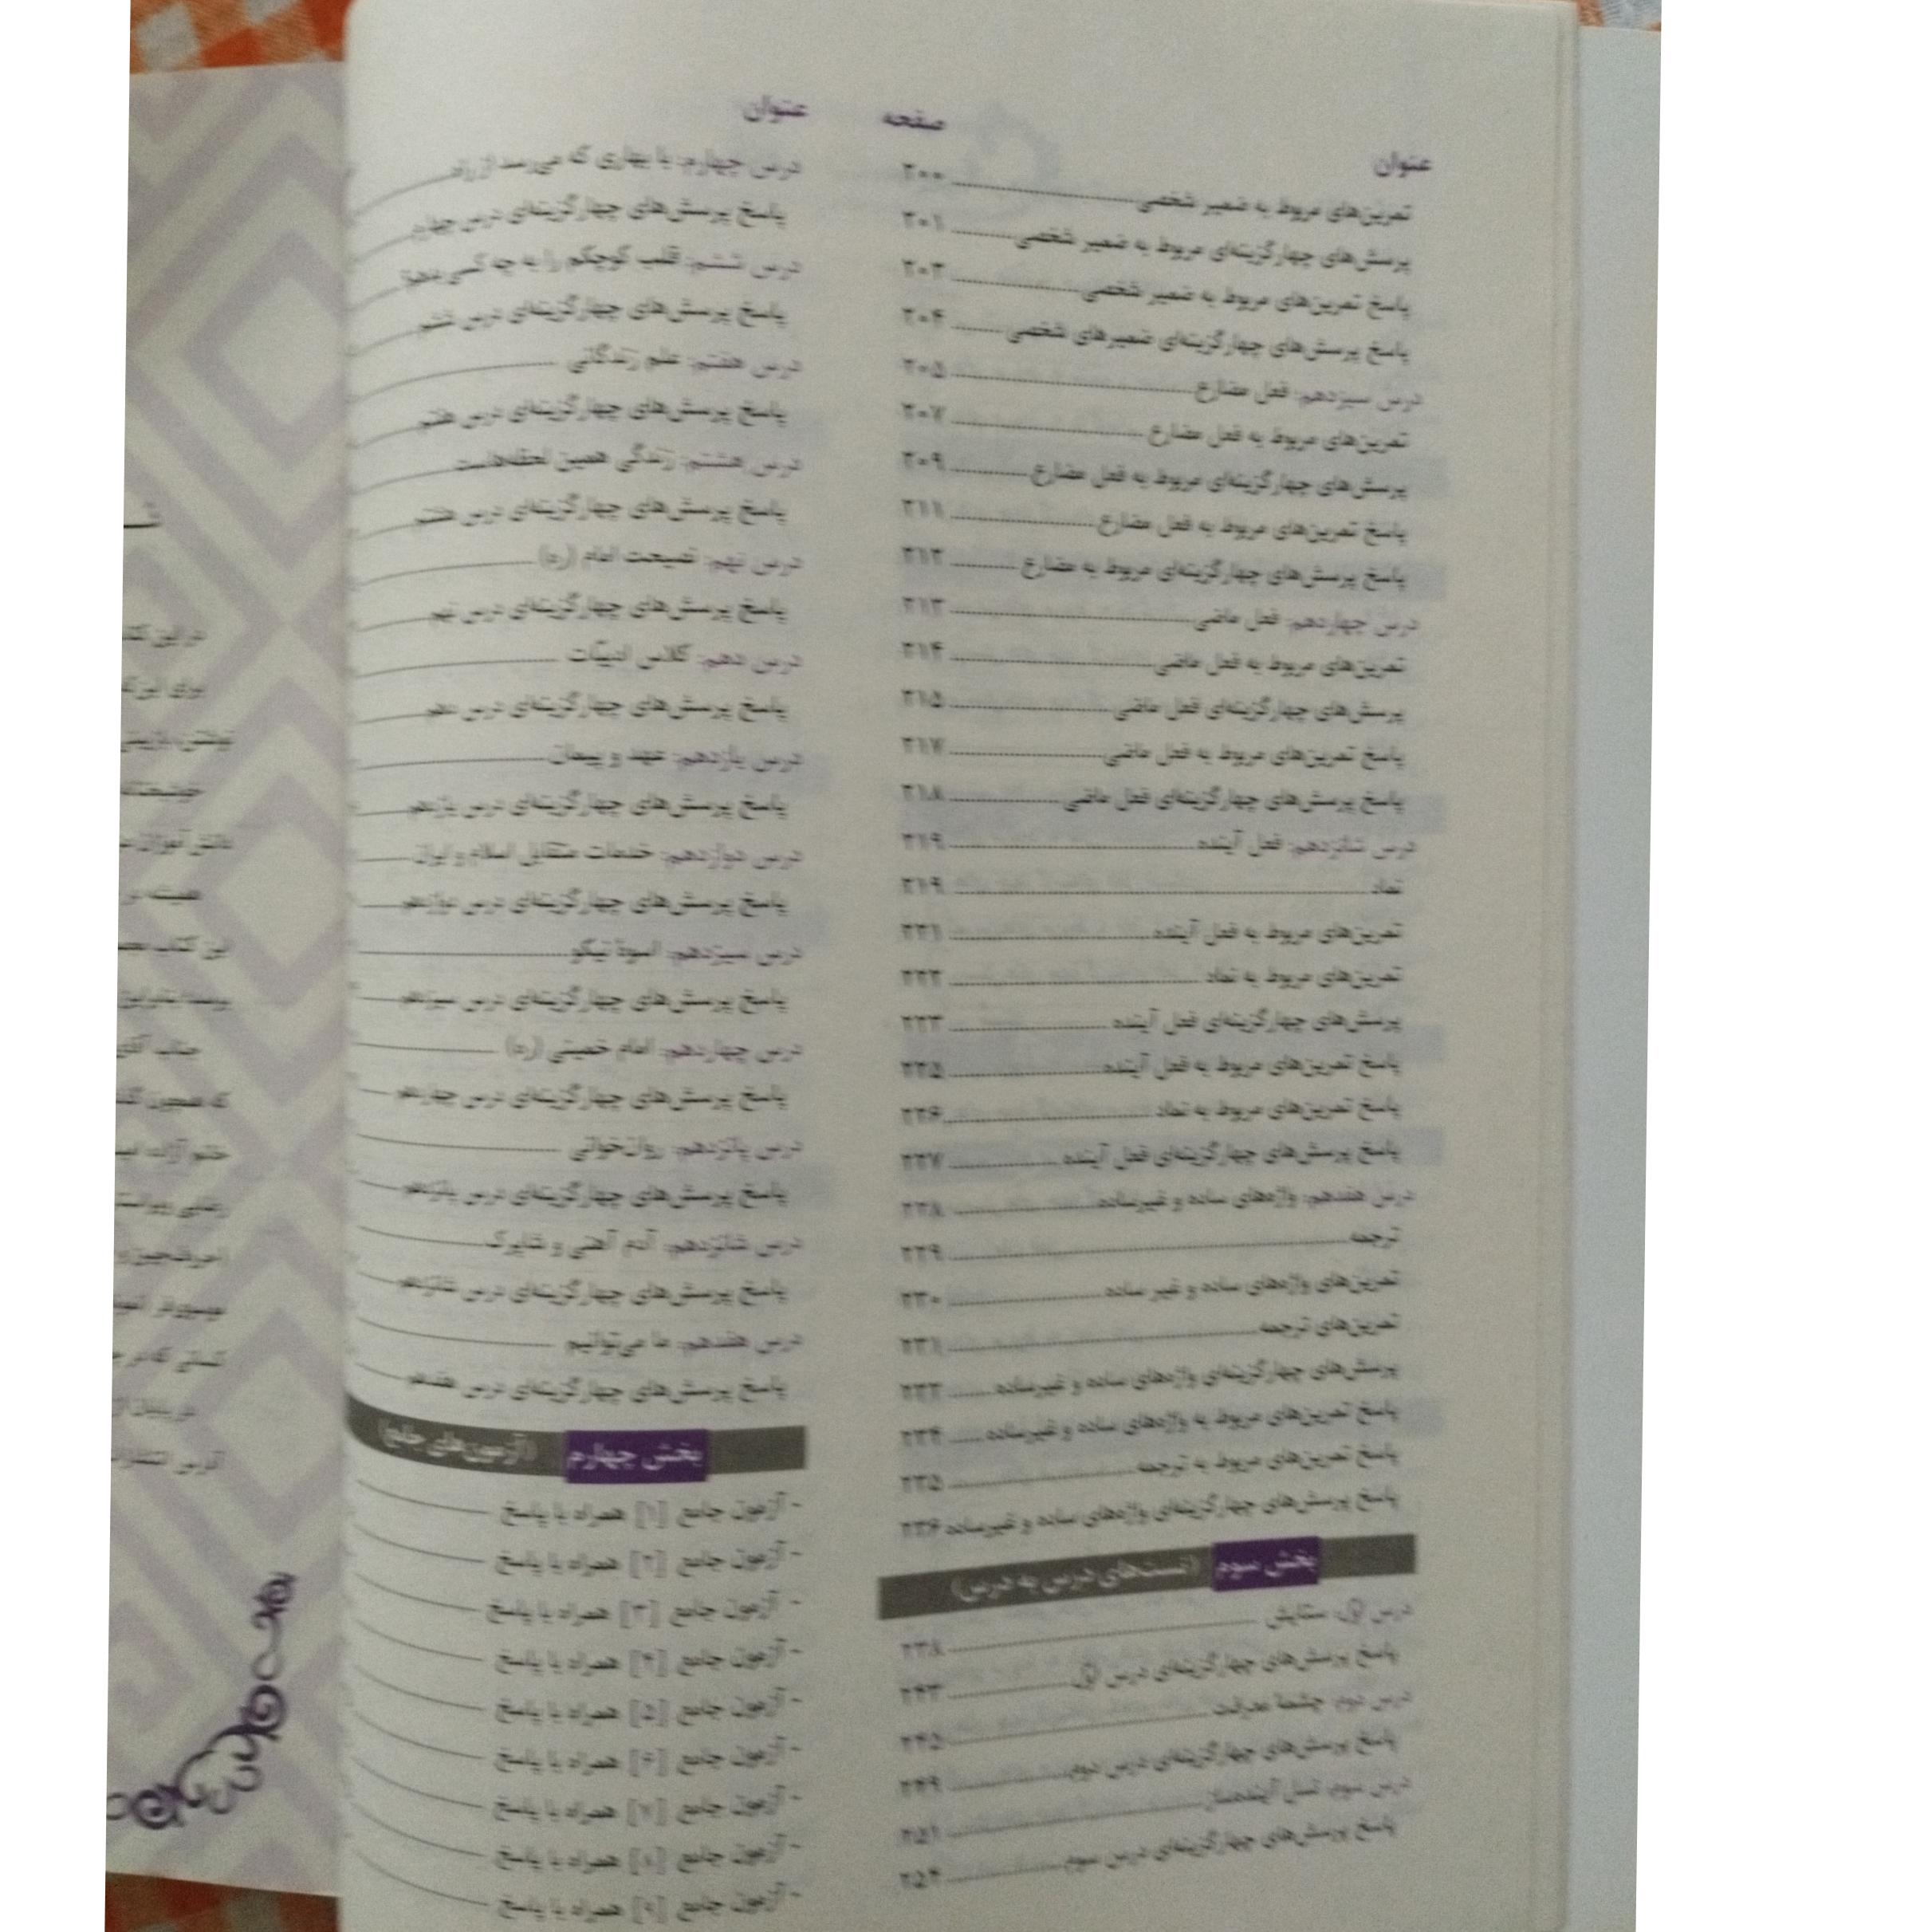 عنوان
صفحه
تمرین‌های مربوط به ضمیر شخصی ۲۰۰
پرسش‌های چهارگزینه‌ای مربوط به ضمیر شخصی ۲۰۱
پاسخ تمرین‌های مربوط به ضمیر شخصی ۲۰۳
پاسخ پرسش‌های چهارگزینه‌ای ضمیرهای شخصی ۲۰۴
درس سیزدهم: فعل مضارع ۲۰۵
تمرین‌های مربوط به فعل مضارع ۲۰۷
پرسش‌های چهارگزینه‌ای مربوط به فعل مضارع ۲۰۹
پاسخ تمرین‌های مربوط به فعل مضارع ۲۱۱
پاسخ پرسش‌های چهارگزینه‌ای مربوط به مضارع ۲۱۲
درس چهاردهم: فعل ماضی ۲۱۳
تمرین‌های مربوط به فعل ماضی ۲۱۴
پرسش‌های چهارگزینه‌ای فعل ماضی ۲۱۵
پاسخ تمرین‌های مربوط به فعل ماضی ۲۱۷
پاسخ پرسش‌های چهارگزینه‌ای فعل ماضی ۲۱۸
درس شانزدهم: فعل آینده ۲۱۹
نماد ۲۱۹
تمرین‌های مربوط به فعل آینده ۲۲۱
تمرین‌های مربوط به نماد ۲۲۲
پرسش‌های چهارگزینه‌ای فعل آینده ۲۲۳
پاسخ تمرین‌های مربوط به فعل آینده ۲۲۵
پاسخ تمرین‌های مربوط به نماد ۲۲۶
پاسخ پرسش‌های چهارگزینه‌ای فعل آینده ۲۲۷
درس هفدهم: واژه‌های ساده و غیرساده ۲۲۸
ترجمه ۲۲۹
تمرین‌های واژه‌های ساده و غیر ساده ۲۳۰
تمرین‌های ترجمه ۲۳۱
پرسش‌های چهارگزینه‌ای واژه‌های ساده و غیرساده
پاسخ تمرین‌های مربوط به واژه‌های ساده و غیرساده ۲۳۴
پاسخ تمرین‌های مربوط به ترجمه ۲۳۵
پاسخ پرسش‌های چهارگزینه‌ای واژه‌های ساده و غیرساده ۲۳۶
بخش سوم (تست‌های درس به درس)
درس اول: ستایش ۲۳۸
پاسخ پرسش‌های چهارگزینه‌ای درس اول ۲۴۳
درس دوم: چشمهٔ معرفت ۲۴۵
پاسخ پرسش‌های چهارگزینه‌ای درس دوم ۲۴۹
درس سوم: نسل آینده‌ساز ۲۵۱
پاسخ پرسش‌های چهارگزینه‌ای درس سوم ۲۵۴
عنوان
درس چهارم: با بهاری که می‌رسد از راه
پاسخ پرسش‌های چهارگزینه‌ای درس چهارم
درس ششم: قلب کوچکم را به چه کسی بدهم؟
پاسخ پرسش‌های چهارگزینه‌ای درس ششم
درس هفتم: علم زندگانی
پاسخ پرسش‌های چهارگزینه‌ای درس هفتم
درس هشتم: زندگی همین لحظه‌هاست
پاسخ پرسش‌های چهارگزینه‌ای درس هشتم
درس نهم: نصیحت امام (ره)
پاسخ پرسش‌های چهارگزینه‌ای درس نهم
درس دهم: کلاس ادبیّات
پاسخ پرسش‌های چهارگزینه‌ای درس دهم
درس یازدهم: عهد و پیمان
پاسخ پرسش‌های چهارگزینه‌ای درس یازدهم
درس دوازدهم: خدمات متقابل اسلام و ایران
پاسخ پرسش‌های چهارگزینه‌ای درس دوازدهم
درس سیزدهم: اسوهٔ نیکو
پاسخ پرسش‌های چهارگزینه‌ای درس سیزدهم
درس چهاردهم: امام خمینی (ره)
پاسخ پرسش‌های چهارگزینه‌ای درس چهاردهم
درس پانزدهم: روان‌خوانی
پاسخ پرسش‌های چهارگزینه‌ای درس پانزدهم
درس شانزدهم: آدم آهنی و شاپرک
پاسخ پرسش‌های چهارگزینه‌ای درس شانزدهم
درس هفدهم: ما می‌توانیم
پاسخ پرسش‌های چهارگزینه‌ای درس هفدهم
بخش چهارم (آزمون‌های جامع)
- آزمون جامع [۱] همراه با پاسخ
- آزمون جامع [۲] همراه با پاسخ
- آزمون جامع [۳] همراه با پاسخ
- آزمون جامع [۴] همراه با پاسخ
- آزمون جامع [۵] همراه با پاسخ
- آزمون جامع [۶] همراه با پاسخ
- آزمون جامع [۷] همراه با پاسخ
- آزمون جامع [۸] همراه با پاسخ
- آزمون جامع [۹] همراه با پاسخ